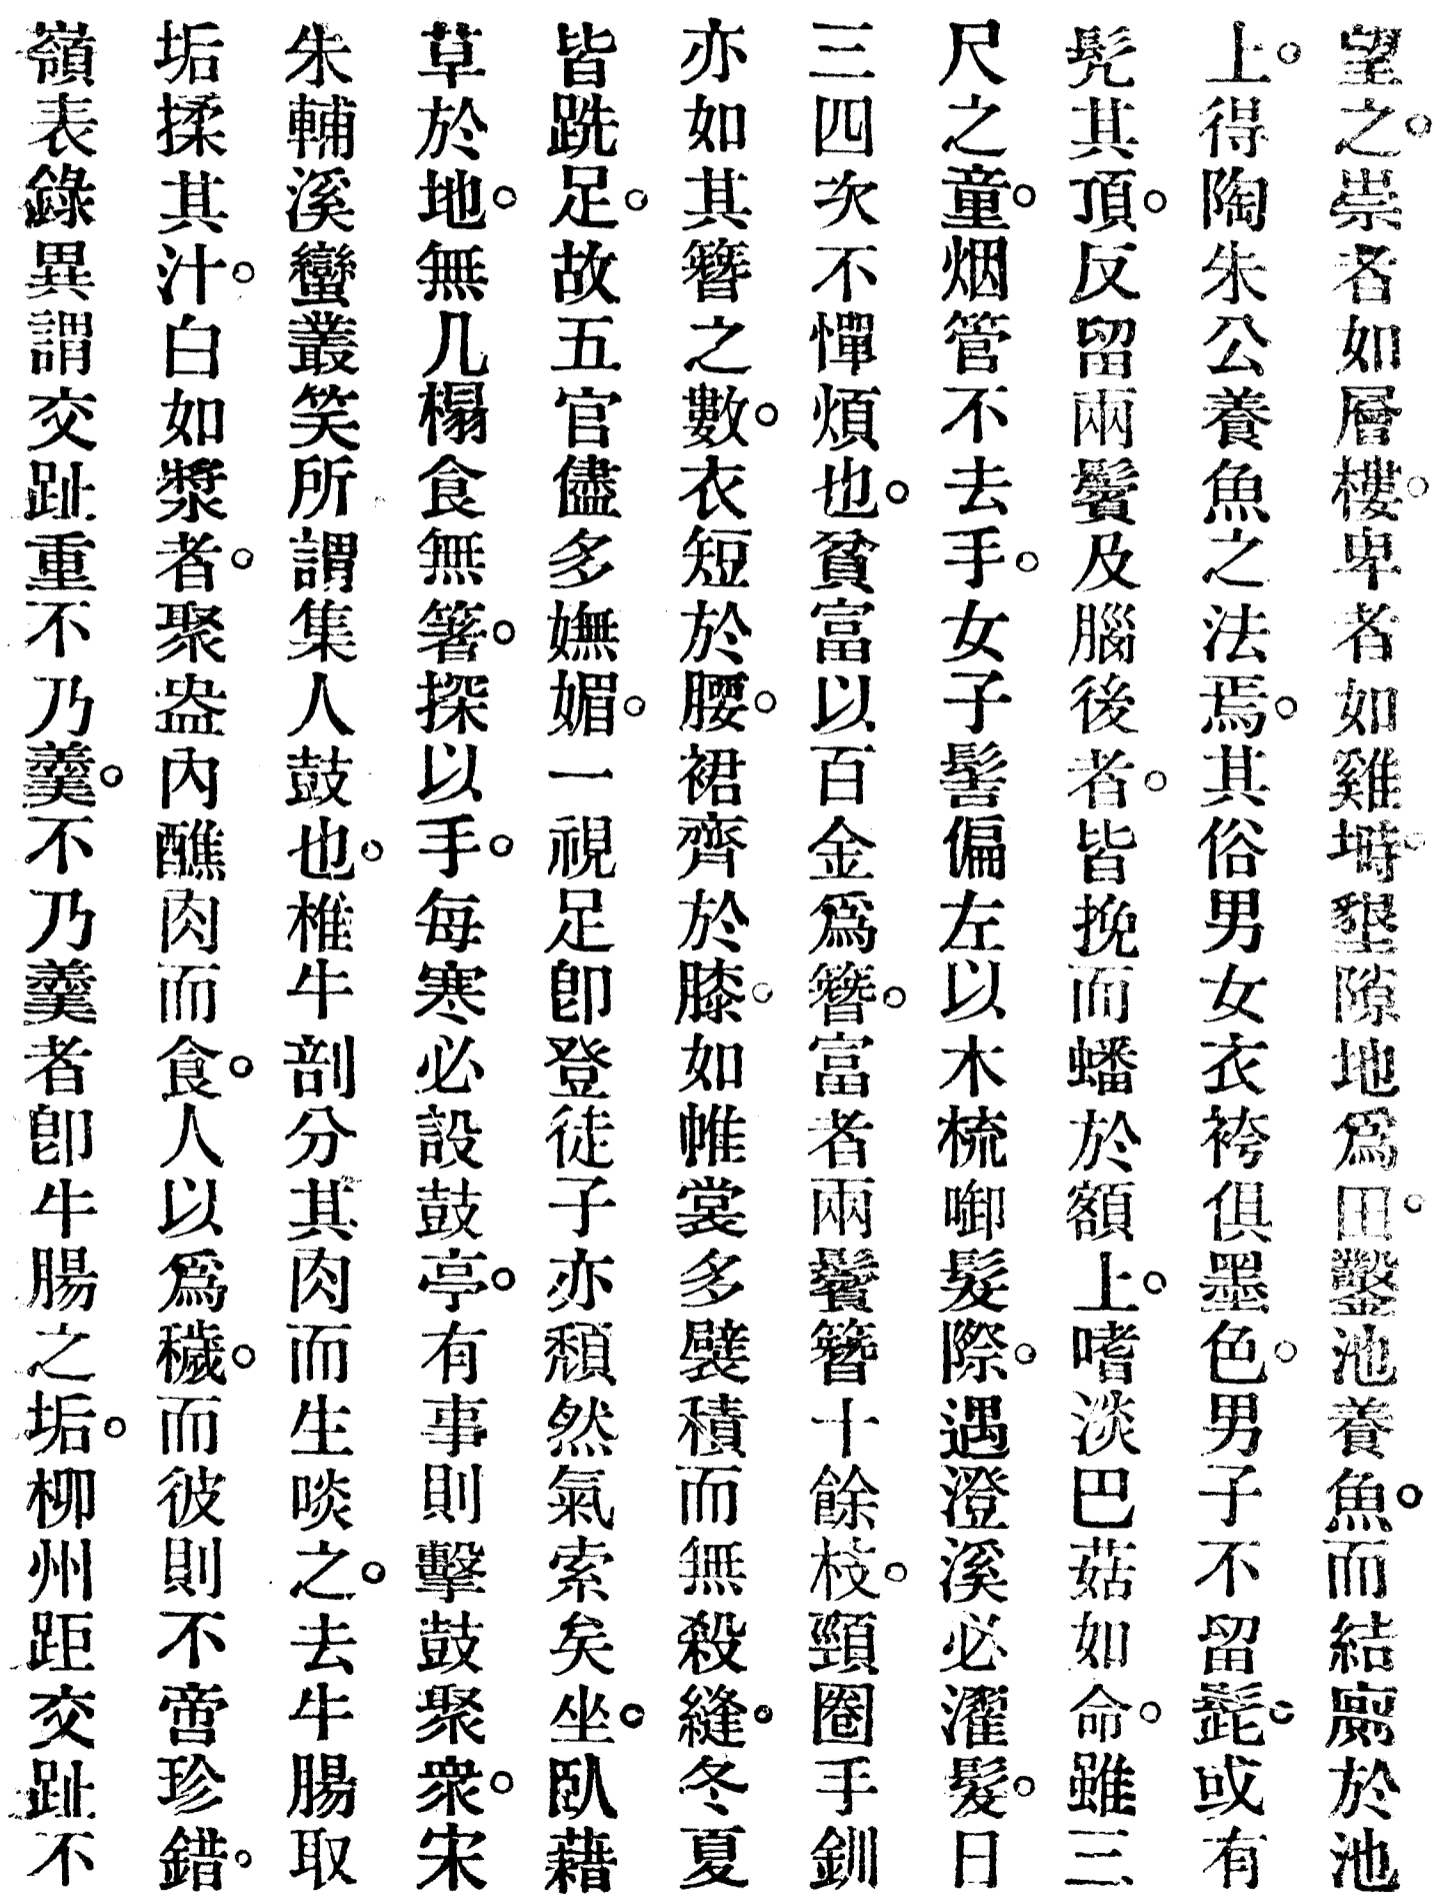 望之。崇者如層樓。卑者如雞塒。墾隙地爲田。鑿池養魚。而結廁於池
上。得陶朱公養魚之法焉。其俗男女衣袴俱墨色。男子不留髭。或有
髡其頂。反留兩鬢及腦後者。皆挽而蟠於額上。嗜淡巴菇如命。雖三
尺之童。烟管不去手。女子髻偏左以木梳啣髮際。遇澄溪必濯髮。日
三四次不憚煩也。貧富以百金爲簪。富者兩鬢簪十餘枝。頸圈手釧
亦如其簪之數。衣短於腰。裙齊於膝。如帷裳多襞積而無殺縫。冬夏
皆跣足。故五官儘多嫵媚。一視足卽登徒子亦頹然氣索矣坐。臥藉
草於地。無几榻食無箸。探以手。每寒必設鼓亭。有事則擊鼓聚衆。宋
朱輔溪蠻叢笑所謂集人鼓也。椎牛剖分其肉而生啖之。去牛腸取
垢揉其汁。白如漿者。聚盎內醮肉而食。人以爲穢。而彼則不啻珍錯。
嶺表錄異謂交趾重不乃羹。不乃羹者卽牛腸之垢。柳州距交趾不